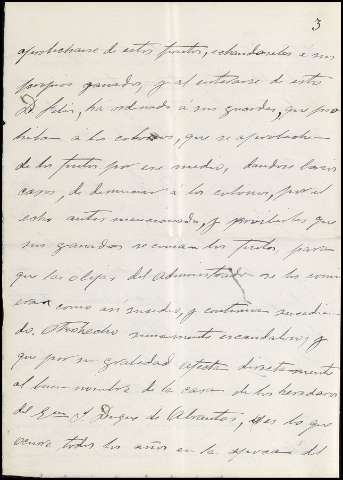 3
aprobecharse de estos frutos, echandoseles á sus
propios ganados, y al enterarse de esto
Dⁿ Felix, ha ordenado á sus guardas, que pro
hiban á los colonos, que se aprobechen
de los frutos por ese medio, dandose barios
casos, de denunciar á los colonos, por el
echo antes mencionado, y proibirles que
sus ganados se coman los frutos, para
que las obejas del Administrador se los comi
eran como asi susedio, y continua sucedien
do. Otro hecho sumamente escandaloso, y
que por su grabedad afecta directamente
al buen nombre de la casa de los herederos
del Exmo S. Duque de Abrantes, es lo que
ocurre todos los años en la epoca del